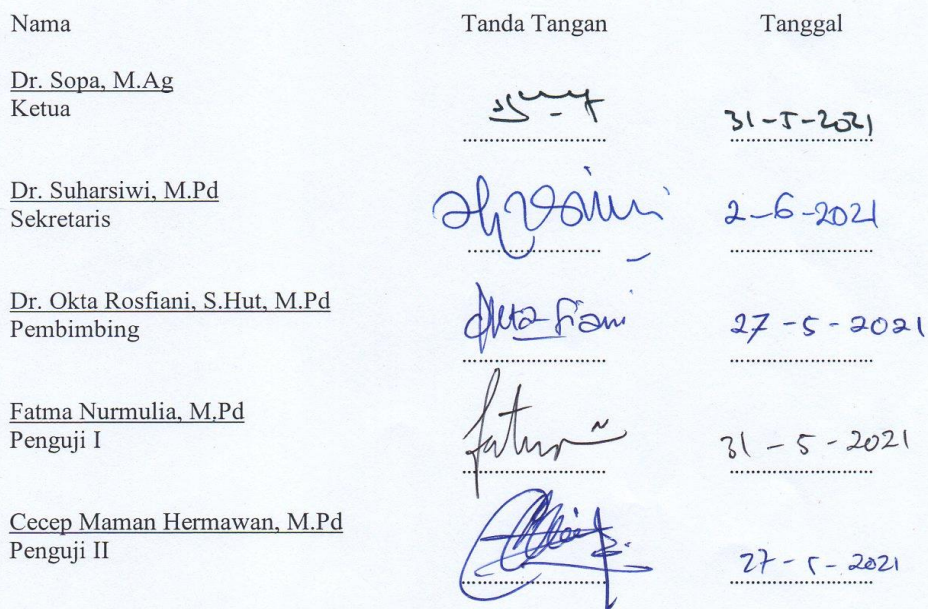 Nama Tanda Tangan Tanggal
Dr. Sopa, M.Ag
Ketua
31-5-2021
Dr. Suharsiwi, M.Pd
Sekretaris
2-6-2021
Dr. Okta Rosfiani, S.Hut, M.Pd
Pembimbing
Okta Fiani
27-5-2021
Fatma Nurmulia, M.Pd
Penguji I
31-5-2021
Cecep Maman Hermawan, M.Pd
Penguji II
27-5-2021